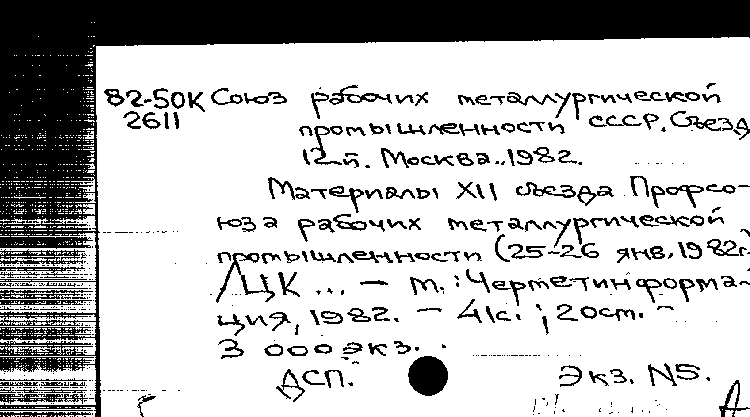 82-50К Союз рабочих металлургической
2611 промышленности СССР. Съезд
12-й. Москва., 1982.
Материалы XII съезда Профсо-
юза рабочих металлургической
промышленности (25-26 янв. 1982г.)
/ЦК ... - М.: Черметинформа-
ция, 1982. - 41с.; 20см. -
3 000 экз.
ДСП. Экз. N5.